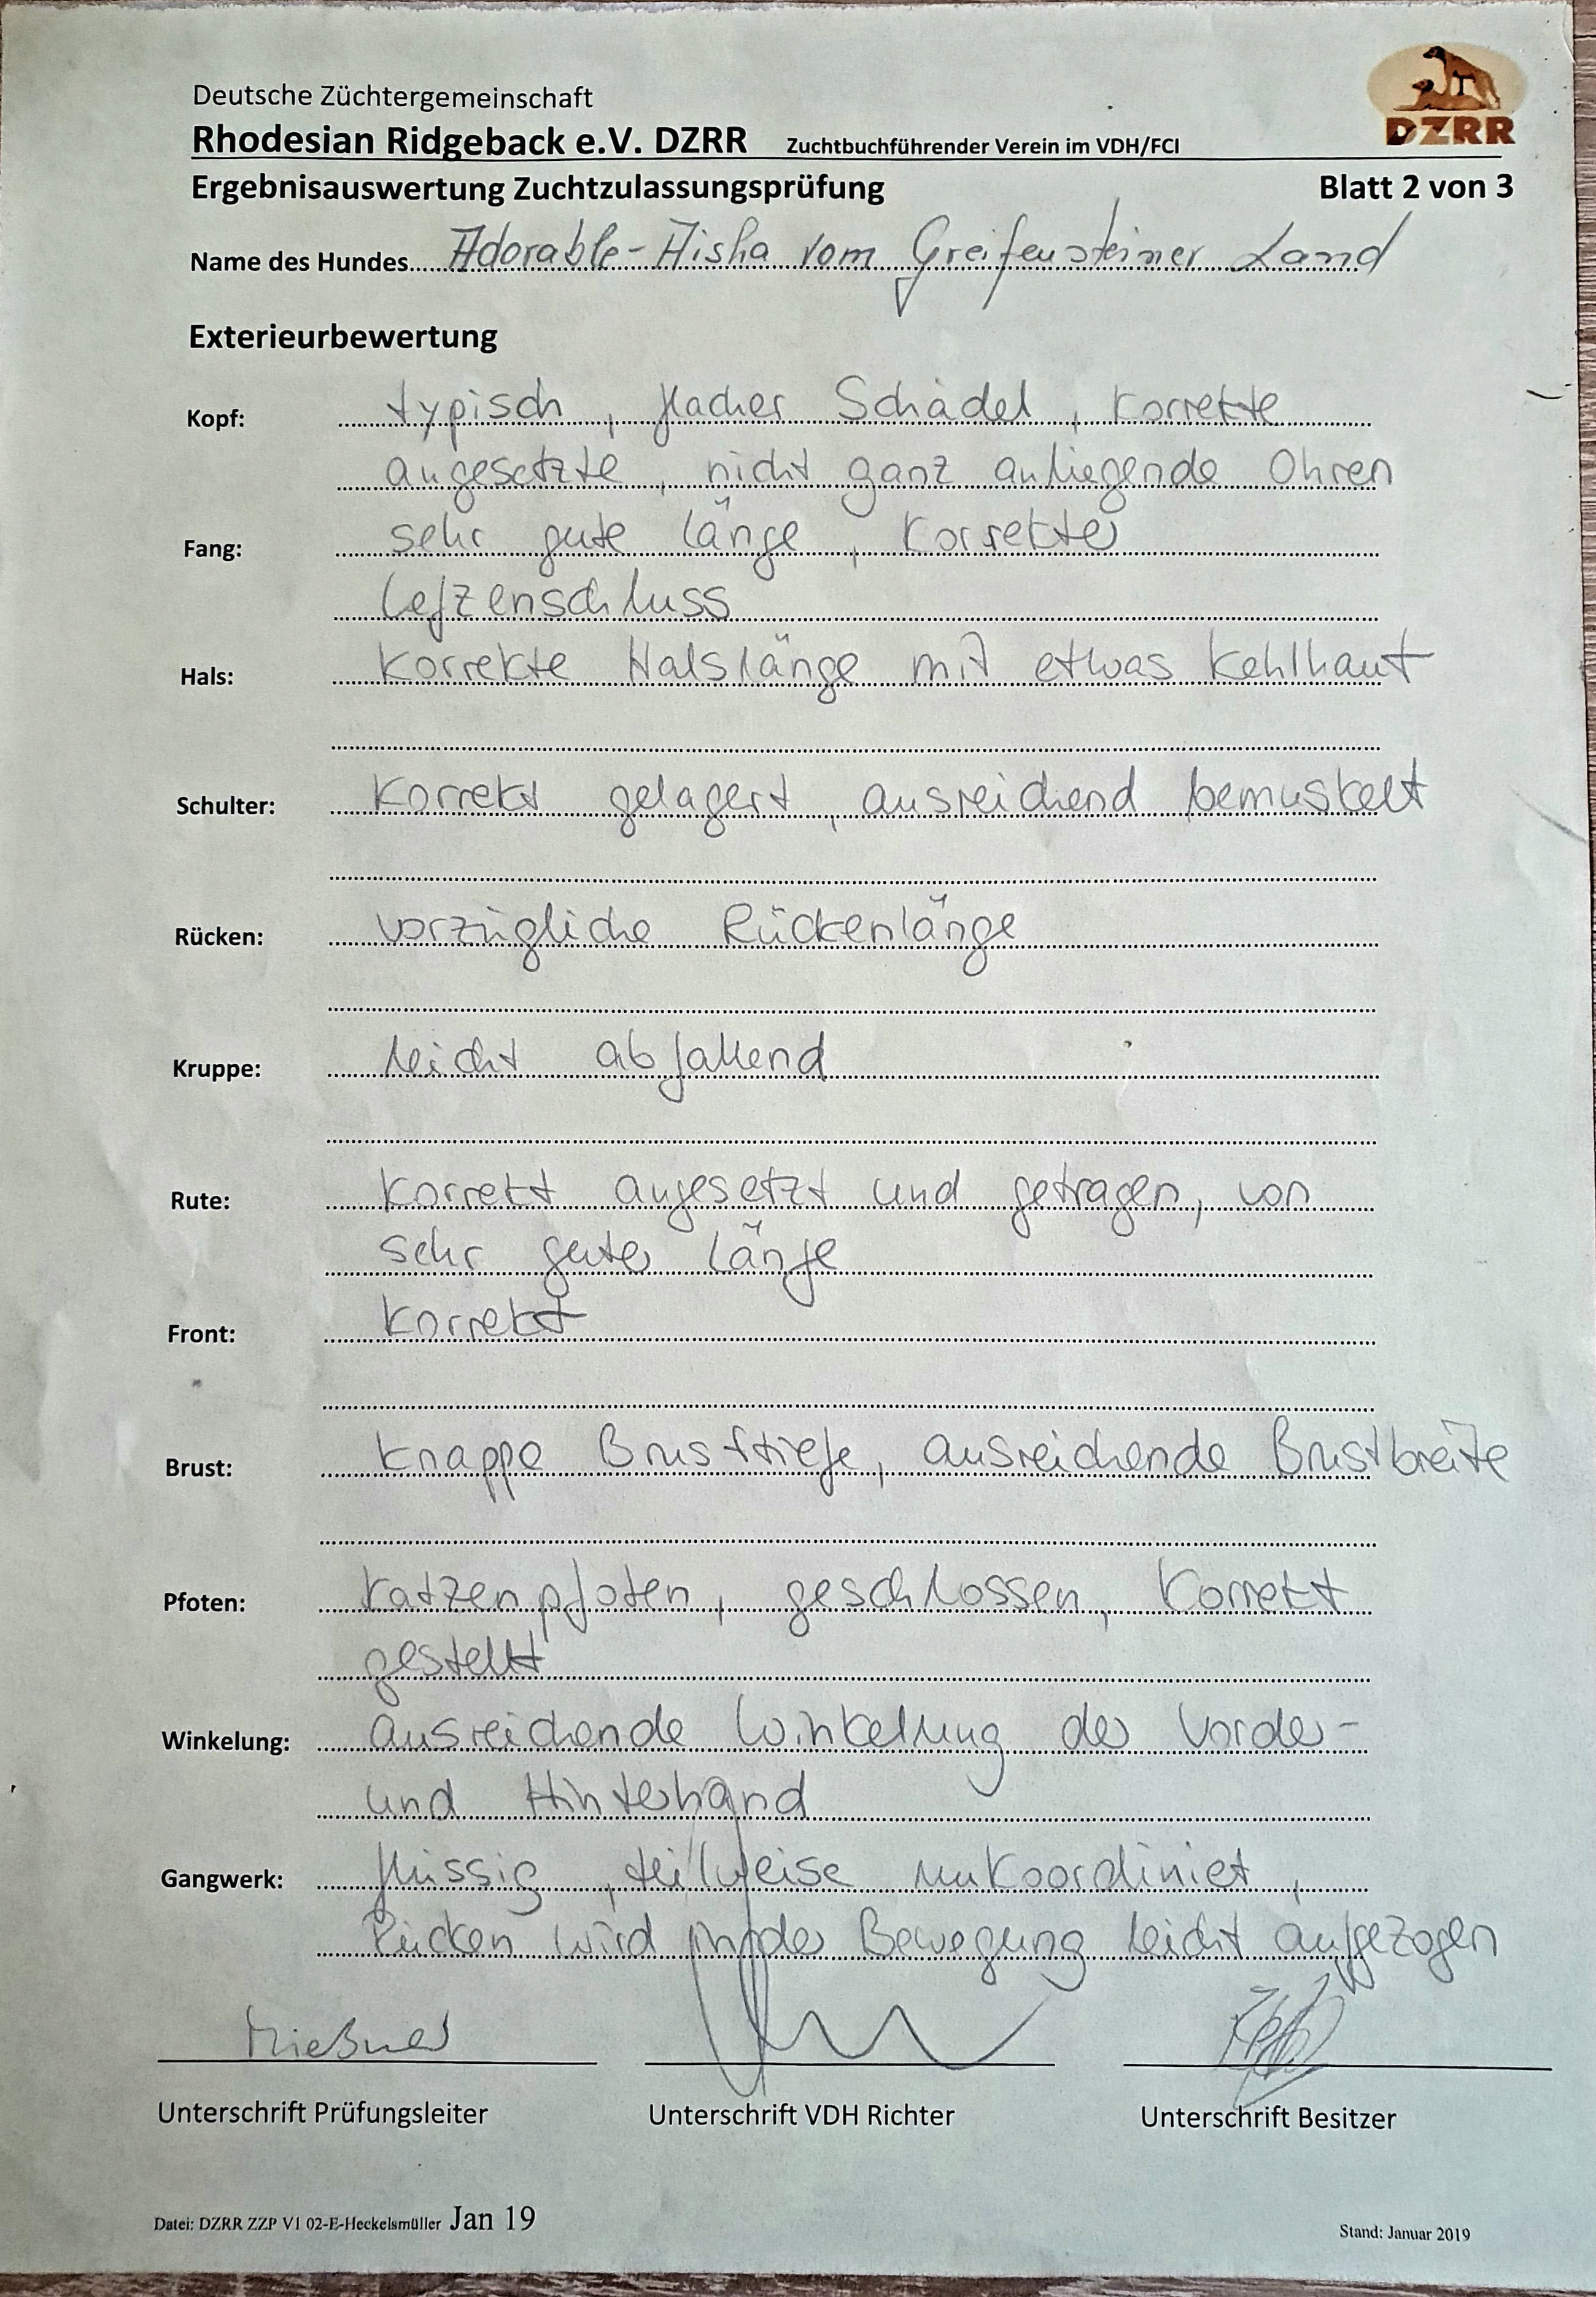 Deutsche Züchtergemeinschaft
Rhodesian Ridgeback e.V. DZRR Zuchtbuchführender Verein im VDH/FCI
DZRR
Ergebnisauswertung Zuchtzulassungsprüfung Blatt 2 von 3
Name des Hundes Adorable-Aisha vom Greifensteiner Land
Exterieurbewertung
Kopf: typisch, flacher Schädel, korrekte
angesetzte, nicht ganz anliegende Ohren
Fang: sehr gute Länge, korrekter
Lefzenschluss
Hals: korrekte Halslänge mit etwas Kehlhaut
Schulter: korrekt gelagert, ausreichend bemuskelt
Rücken: vorzügliche Rückenlänge
Kruppe: leicht abfallend
Rute: korrekt angesetzt und getragen, von
sehr guter Länge
Front: korrekt
Brust: knappe Brusttiefe, ausreichende Brustbreite
Pfoten: Katzenpfoten, geschlossen, korrekt
gestellt
Winkelung: ausreichende Winkelung der Vorder-
und Hinterhand
Gangwerk: flüssig, teilweise unkoordiniert,
Rücken wird in der Bewegung leicht aufgezogen
Unterschrift Prüfungsleiter Unterschrift VDH Richter Unterschrift Besitzer
Datei: DZRR ZZP V1 02-E-Heckelsmüller Jan 19 Stand: Januar 2019